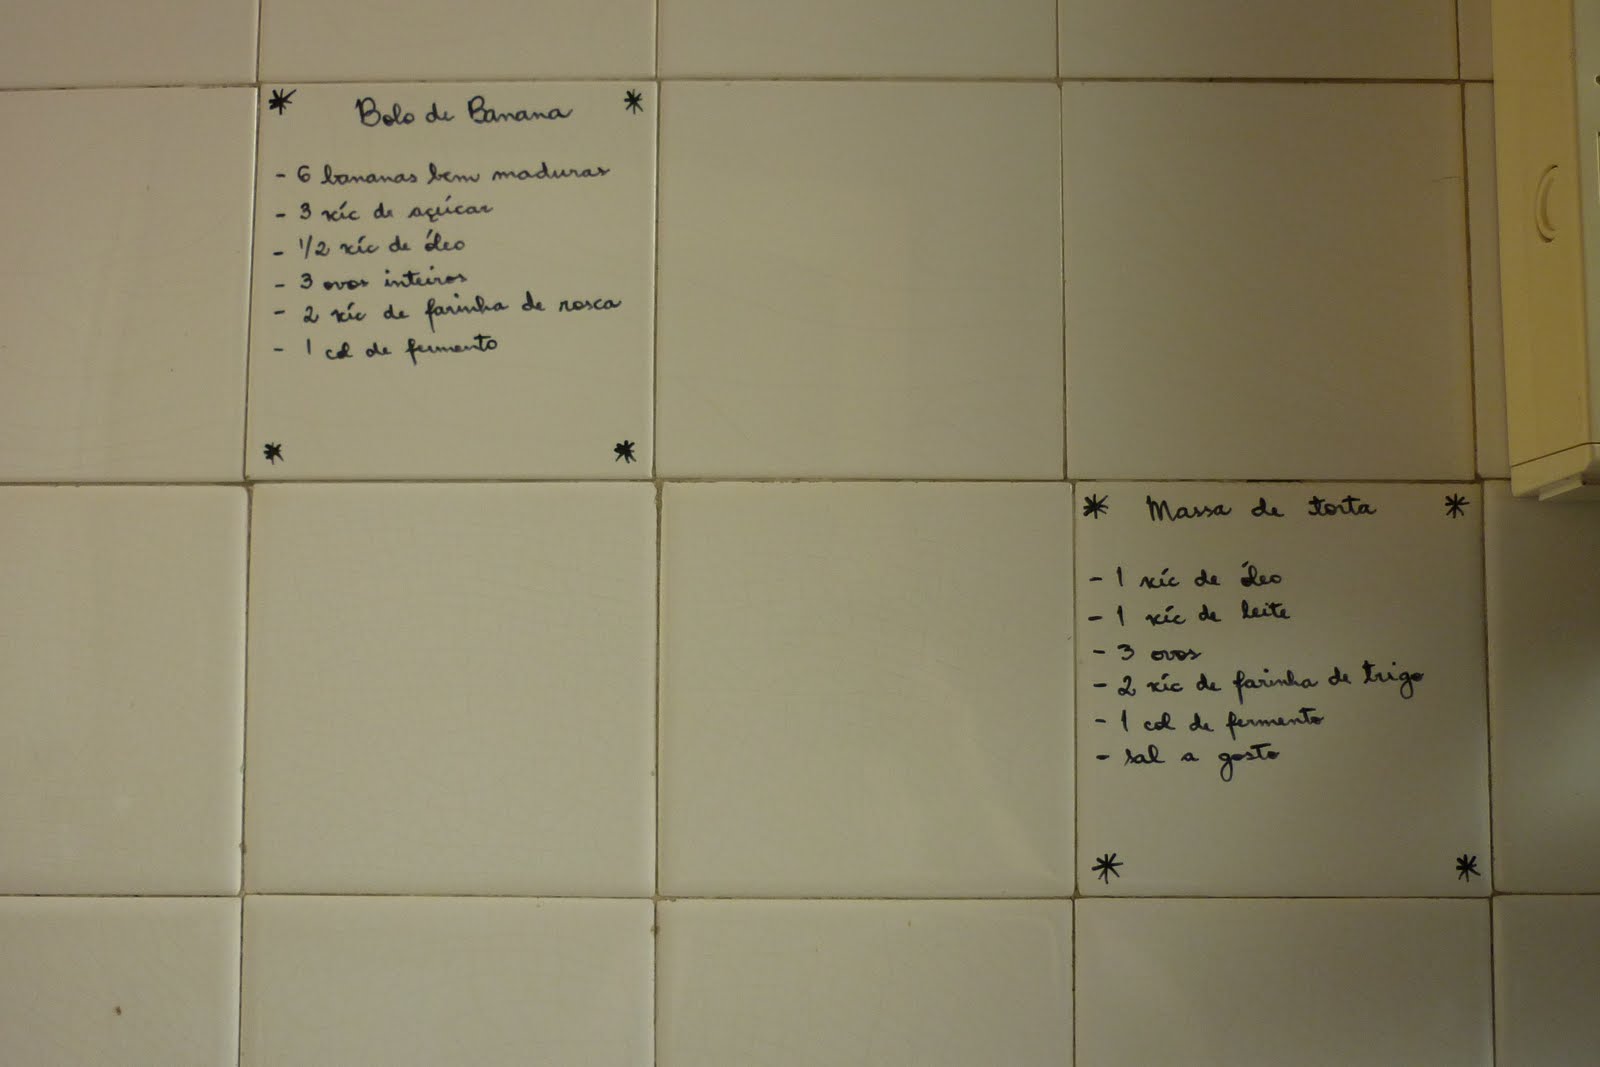 Bolo de Banana
- 6 bananas bem maduras
- 3 xíc de açúcar
- 1/2 xíc de óleo
- 3 ovos inteiros
- 2 xíc de farinha de rosca
- 1 col de fermento
Massa de torta
- 1 xíc de óleo
- 1 xíc de leite
- 3 ovos
- 2 xíc de farinha de trigo
- 1 col de fermento
- sal a gosto